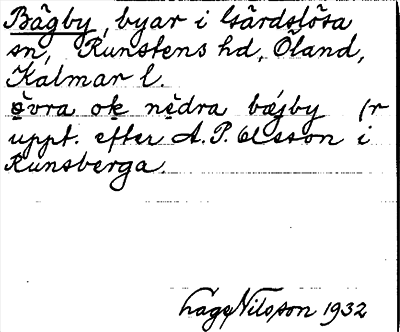 Bägby, byar i Gärdslösa
sn, Runstens hd, Öland,
Kalmar l.
övra ok nedra bægby (r
uppt. efter A. P. Olsson i
Runsberga.
Hage Nilsson 1932